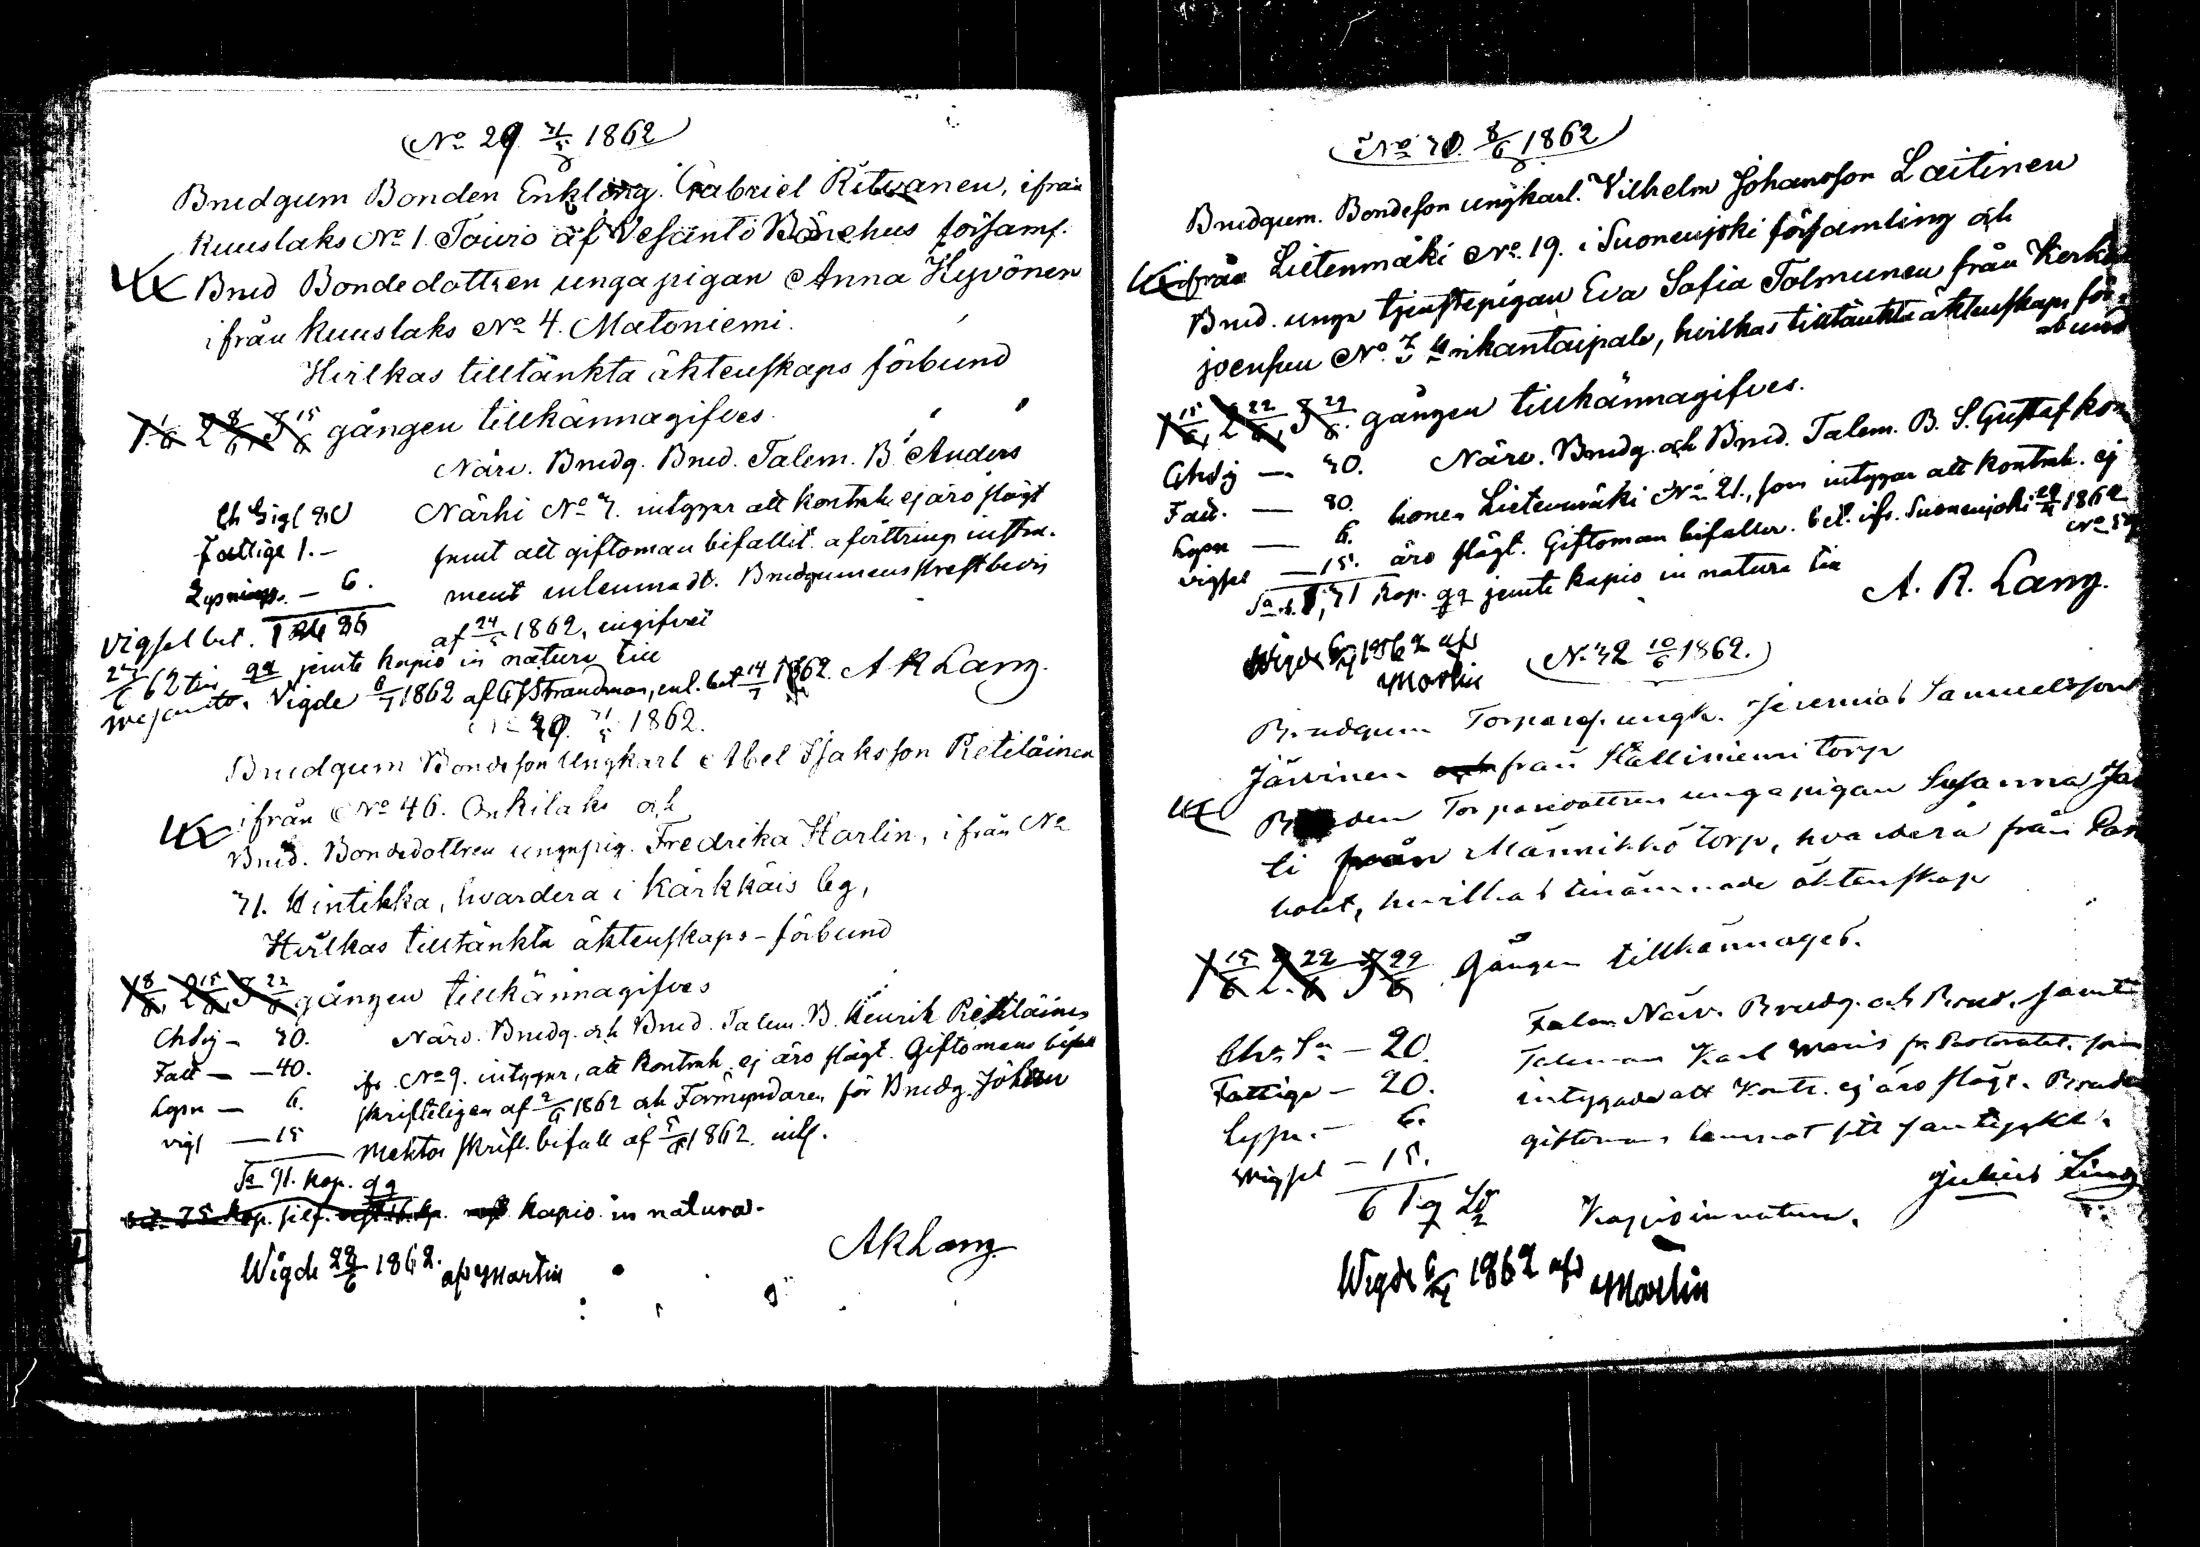 No 29 31/5 1862
Brudgum Bonden Enkling. Gabriel Ritvanen, ifrån
Kuuslaks No 1. Toivio af Vesanto Bönehus församl.
Brud Bondedottren unga pigan Anna Hyvönen
ifrån Kuuslaks No 4. Matoniemi.
Hvilkas tilltänkta äktenskaps förbund
1 1/6 2 8/6, 3 15/6 gången tillkännagifves.
Närv. Brudg. Brud. Talem. B. Anders
Närhi No 7. intygar att kontrah. ej äro slägt
samt att giftoman bifallit. afvittrings instru-
ment inlemnadt. Brudgummens skriftbevis
af 24/5 1862, ingifvet
Fattige 1. -
Lysnings. - 6.
Vigsel bet.
jemte kapio in natura till
Vigde 6/7 1862 af Strandman, enl. bet 14/7 1862. A R Lang.
31/5 1862.
Brudgum Bondeson Ungkarl Abel Isaksson Rietiläinen
ifrån No 46. Onkilaks och
Brud. Bondedottren ungapig. Fredrika Harlin, ifrån No
31. Hintikka, hvardera i Kärkkäis leg,
Hvilkas tilltänkta äktenskaps-förbund
1 8/6, 2 15/6, 3 22/6 gången tillkännagifves
Närv. Brudg. och Brud. Talem. B. Henrik Rietiläinen
ifr. No 9. intygar, att kontrah. ej äro slägt. Giftomans bifall
skrifteligen af 2/6 1862 och Förmyndaren för Brudg. Johan
skriftl. bifall af 5/6 1862. inl.
Chdig - 30.
Fatt - 40.
Lysn - 6.
vigs - 15
Sa 91. kop.
kapio in natura.
A R Lang
Wigde 22/6 1862. af Martin
8/6 1862
Brudgum. Bondeson ungkarl. Vilhelm Johansson Laitinen
ifrån Lietenmäki No. 19. i Suonenjoki församling och
Brud. unga tjenstepigan Eva Sofia Tolmunen från Kerkon
joensuu No. 7 Hrikantaipale, hvilkas tilltänkta äktenskaps för-
bund
1 15/6, 2 22/6, 3 29/6. gången tillkännagifves.
Närv. Brudg. och Brud. Talem. B. S. Gustaf Kor
honen Lietenmäki No 21., som intygar att kontrah. ej
äro slägt. Giftoman bifaller. bet. ifr. Suonenjoki 29/4 1862
Chdig - 30.
Fatt. - 80.
Lysn - 6.
vigsel - 15.
kop. jemte kapio in natura till
A. R. Lang.
Wigde 6/7 1862 af
Martin
No 32 10/6 1862.
Brudgum Torpareson ungk. Jeremias Samuelsson
Järvinen från Hälliniemi torp
Bruden Torparedottren unga pigan Susanna
från Männikkö torp, hvardera från
hvilkas tillämnade äktenskap
1 15/6 2 22/6 3 29/6 Gången tillkännages.
Närv. Brudg. och Brud, samt
Taleman Karl fr. Pastoratet, som
intygade att Kontr. ej äro slägt. Brudens
giftoman lemnat sitt samtycke.
Chr. Sa - 20.
Fattige - 20.
Lysn. - 6.
Wigsel - 15.
61
Kapio in natura.
Julius
Wigde 6/7 1862 af
Martin